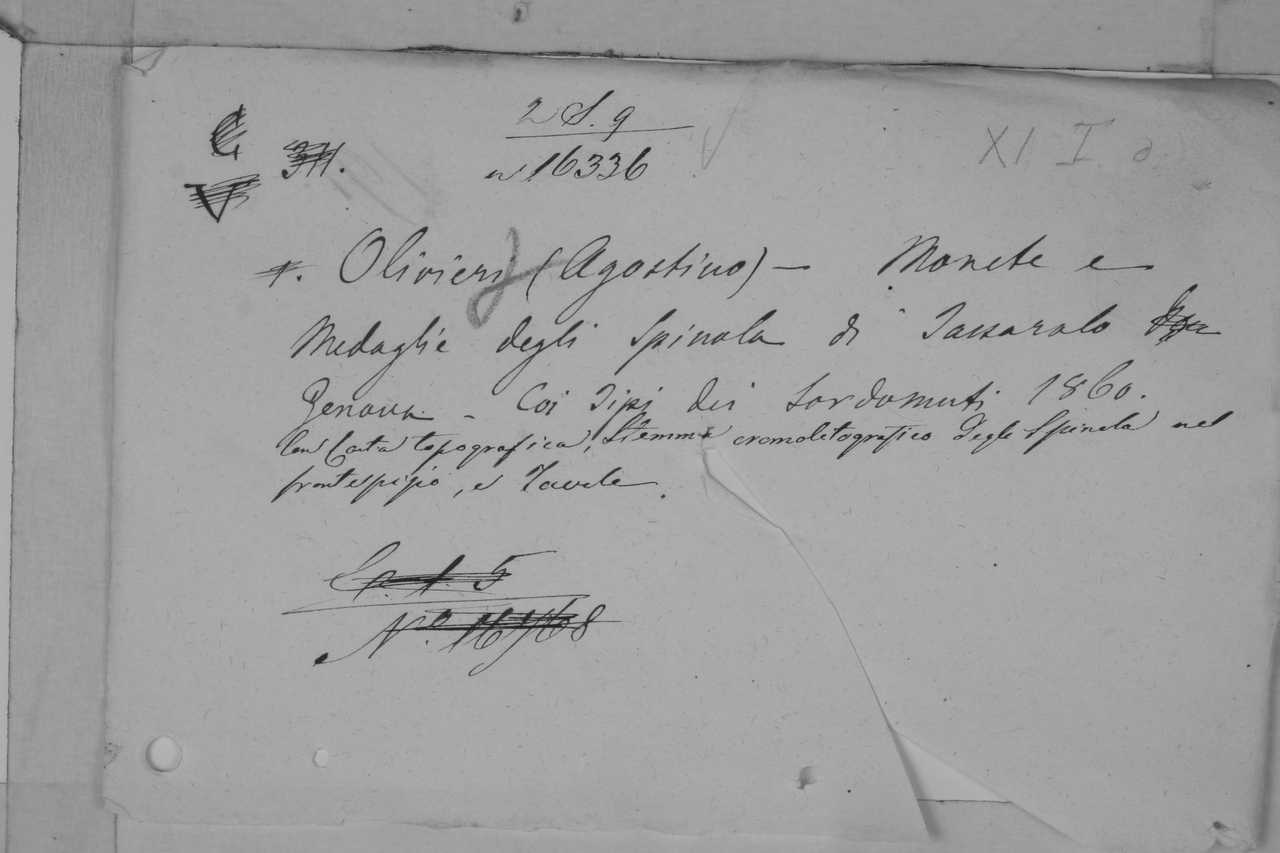 2 S. 9
n 16336
XI I
371.
*. Olivieri (Agostino) — Monete e
Medaglie degli Spinola di Tassarolo
Genova - Coi Tipi dei Sordomuti 1860.
Con Carta topografica, Stemma cromolitografico degli Spinola nel
frontespizio, e Tavole.
N.º 16768